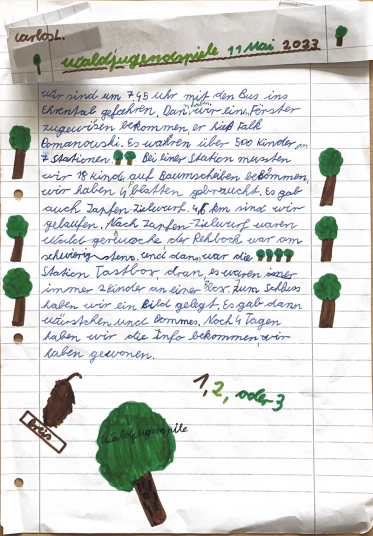 Carlos L.
Waldjugendspiele 11 Mai 2023
Wir sind um 7 45 Uhr mit den Bus ins
Ehrental gefahren. Dan haben wir ein Förster
zugewisen bekommen, er hieß Falk
Domanowski. Es wahren über 500 Kinder, an
7 Stationen. Bei einer Station mussten
wir 18 Kind auf Baumscheiben bekommen,
wir haben 4 blatten gebraucht. Es gab
auch Zapfen-Zielwurf. 4,5 km sind wir
gelaufen. Nach Zapfen-Zielwurf waren
Wald geräusche der Rehbock war am
schwierigsteno. und dan, war die
Station Tastbox, dran, es waren imer
immer 2 Kinder an einer box. Zum Schluss
haben wir ein Bild gelegt. Es gab dann
würstchen und Pommes. Noch 4 Tagen
haben wir die Info bekommen, wir
haben gewonen.
1, 2, oder 3
Waldjugendspiele